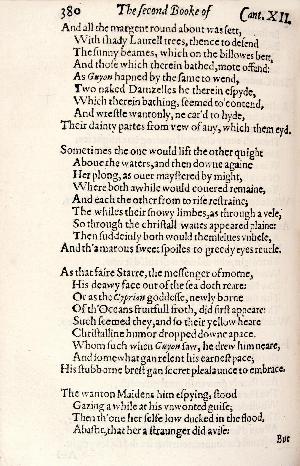 380 The second Booke of Cant. XII.
And all the margent round about was sett,
With shady Laurell trees, thence to defend
The sunny beames, which on the billowes bett,
And those which therein bathed, mote offend.
As Guyon hapned by the same to wend,
Two naked Damzelles he therein espyde,
Which therein bathing, seemed to contend,
And wrestle wantonly, ne car'd to hyde,
Their dainty partes from vew of any, which them eyd.
Sometimes the one would lift the other quight
Aboue the waters, and then downe againe
Her plong, as ouer maystered by might,
Where both awhile would couered remaine,
And each the other from to rise restraine;
The whiles their snowy limbes, as through a vele,
So through the christall waues appeared plaine:
Then suddeinly both would themselues vnhele,
And th'amarous sweet spoiles to greedy eyes reuele.
As that faire Starre, the messenger of morne,
His deawy face out of the sea doth reare:
Or as the Cyprian goddesse, newly borne
Of th'Oceans fruitfull froth, did first appeare:
Such seemed they, and so their yellow heare
Christalline humor dropped downe apace.
Whom such when Guyon saw, he drew him neare,
And somewhat gan relent his earnest pace;
His stubborne brest gan secret pleasaunce to embrace.
The wanton Maidens him espying, stood
Gazing a while at his vnwonted guise;
Then th'one her selfe low ducked in the flood,
Abasht, that her a straunger did avise:
But